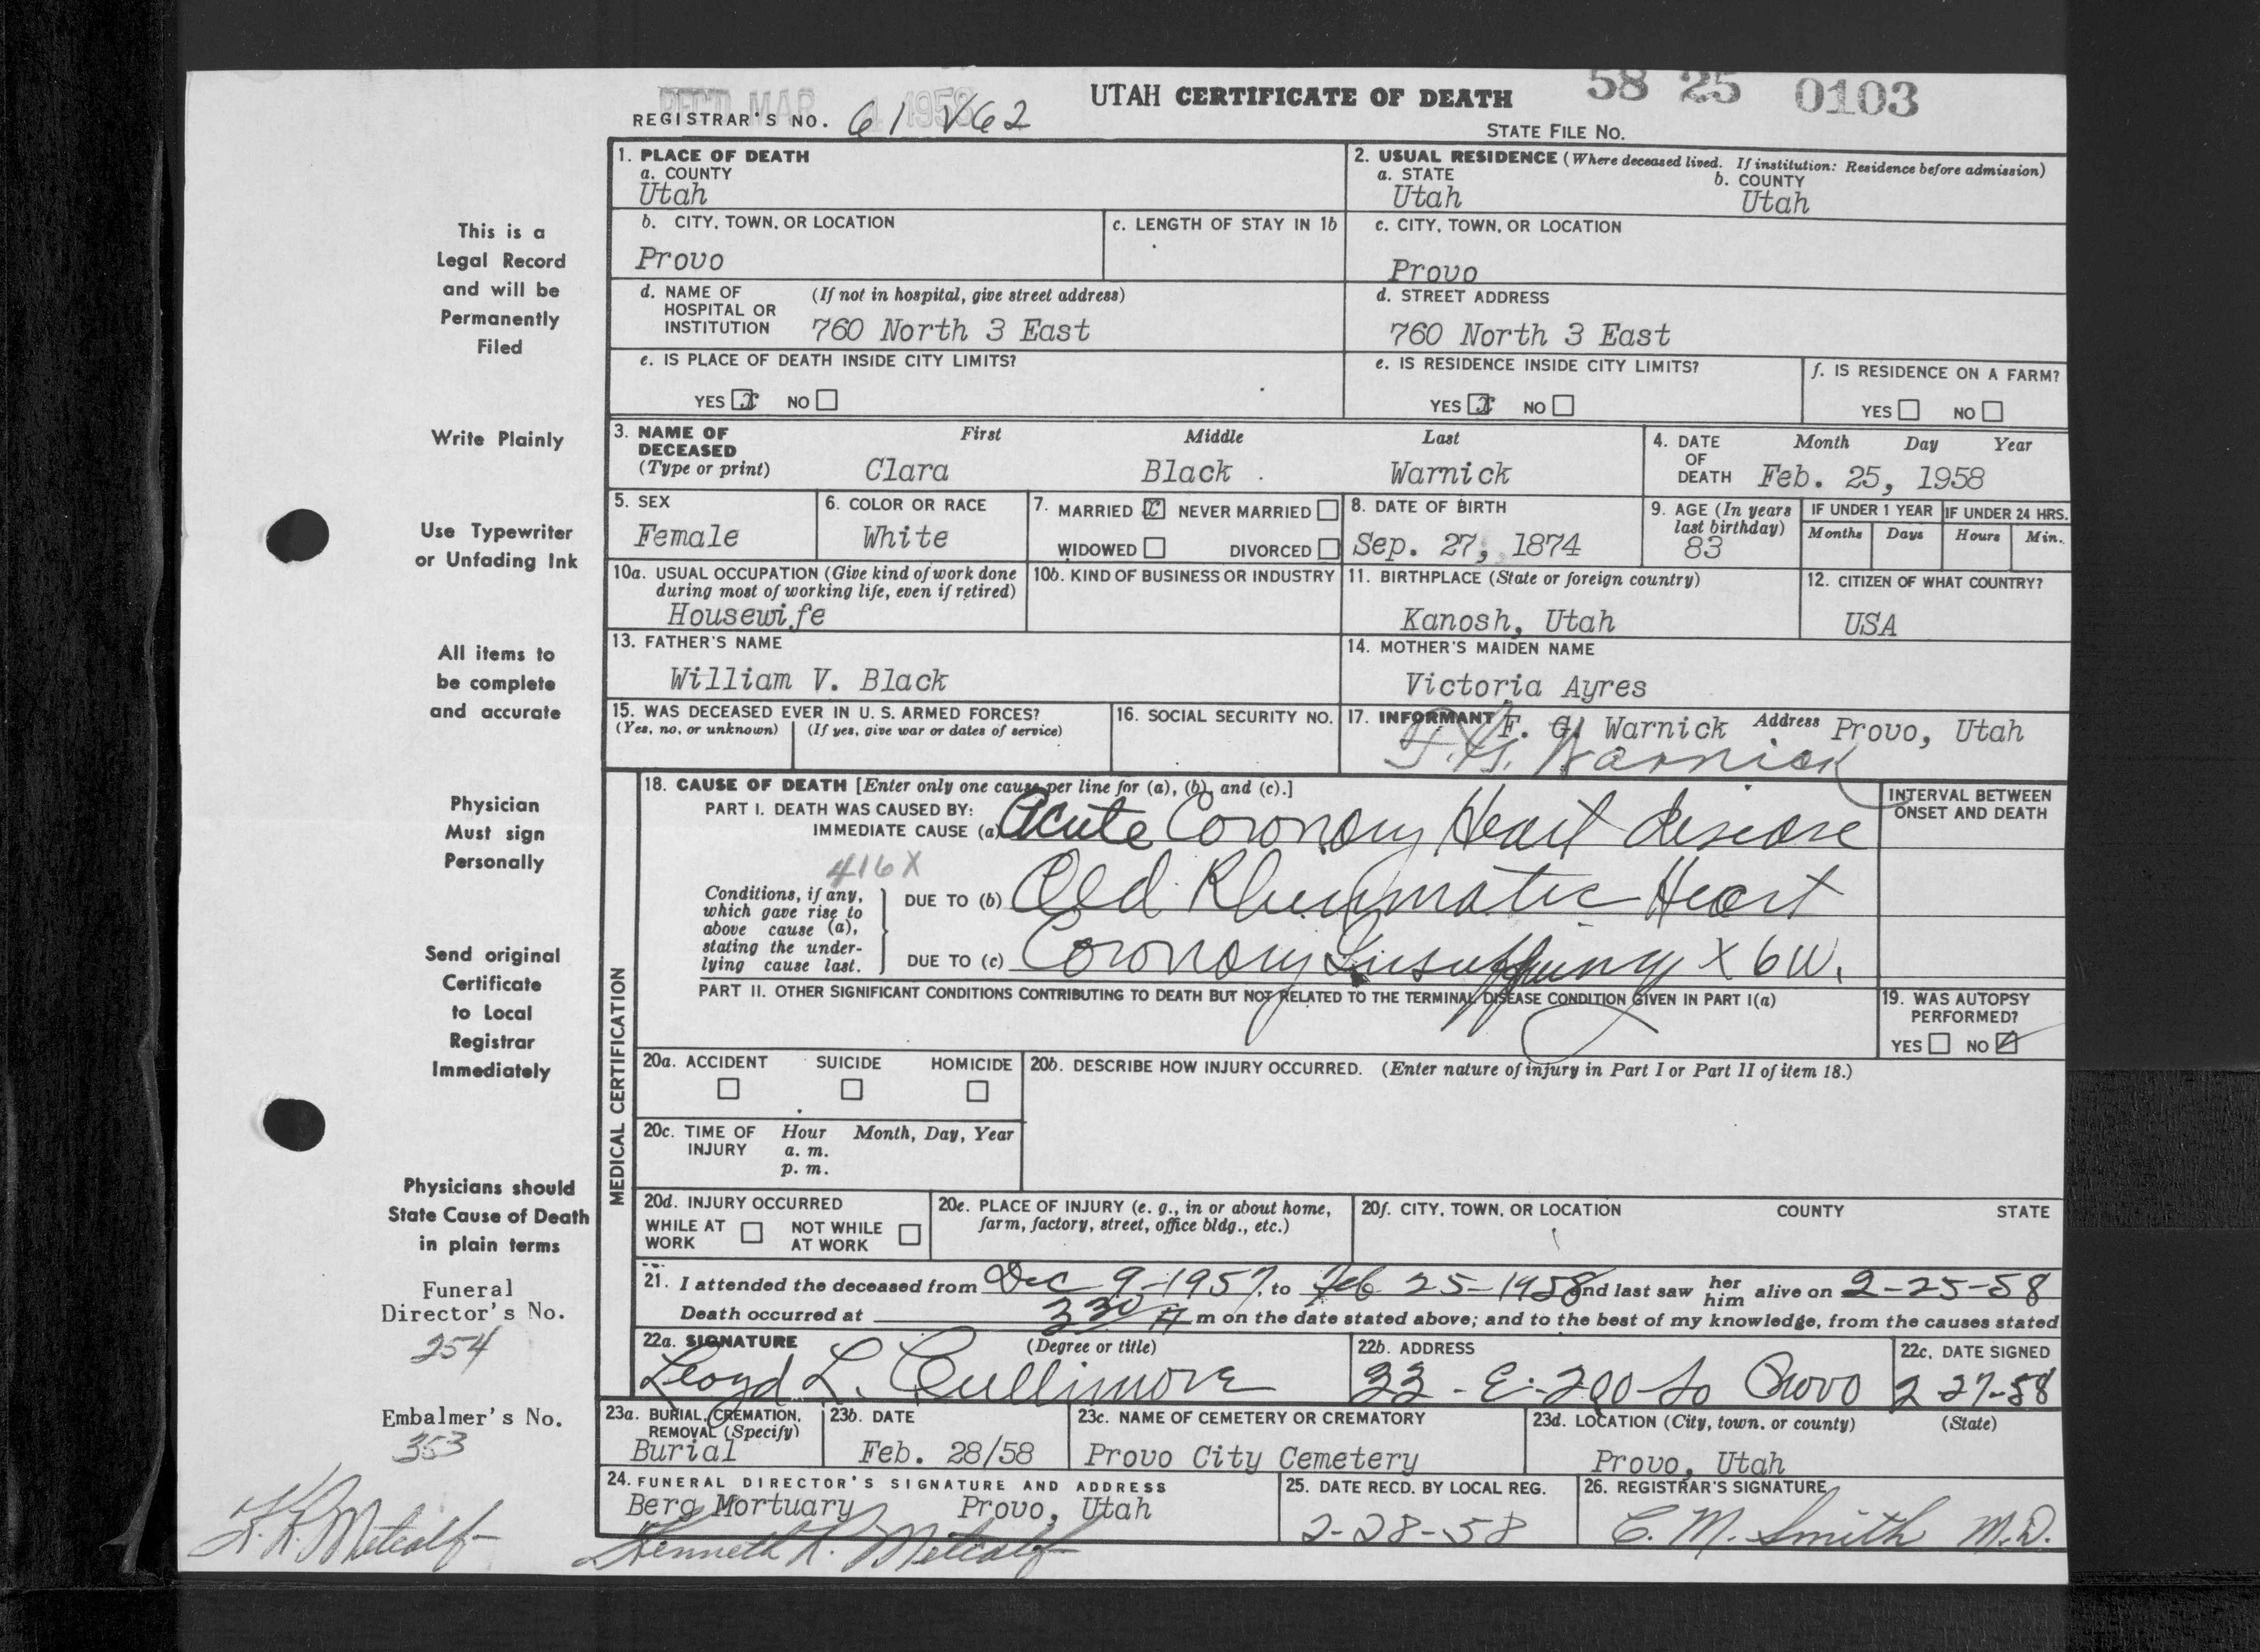 REC'D MAR 4 1958
UTAH CERTIFICATE OF DEATH
58 25 0103
REGISTRAR'S NO. 61 V62
STATE FILE NO.
1. PLACE OF DEATH
a. COUNTY
Utah
2. USUAL RESIDENCE (Where deceased lived. If institution: Residence before admission)
a. STATE
Utah
b. COUNTY
Utah
b. CITY, TOWN, OR LOCATION
Provo
c. LENGTH OF STAY IN 1b
c. CITY, TOWN, OR LOCATION
Provo
d. NAME OF HOSPITAL OR INSTITUTION
(If not in hospital, give street address)
760 North 3 East
d. STREET ADDRESS
760 North 3 East
e. IS PLACE OF DEATH INSIDE CITY LIMITS?
YES x NO
e. IS RESIDENCE INSIDE CITY LIMITS?
YES x NO
f. IS RESIDENCE ON A FARM?
YES NO
3. NAME OF DECEASED
(Type or print)
First Middle Last
Clara Black Warnick
4. DATE OF DEATH
Month Day Year
Feb. 25, 1958
5. SEX
Female
6. COLOR OR RACE
White
7. MARRIED x NEVER MARRIED
WIDOWED DIVORCED
8. DATE OF BIRTH
Sep. 27, 1874
9. AGE (In years last birthday)
83
IF UNDER 1 YEAR
Months Days
IF UNDER 24 HRS.
Hours Min.
10a. USUAL OCCUPATION (Give kind of work done during most of working life, even if retired)
Housewife
10b. KIND OF BUSINESS OR INDUSTRY
11. BIRTHPLACE (State or foreign country)
Kanosh, Utah
12. CITIZEN OF WHAT COUNTRY?
USA
13. FATHER'S NAME
William V. Black
14. MOTHER'S MAIDEN NAME
Victoria Ayres
15. WAS DECEASED EVER IN U. S. ARMED FORCES?
(Yes, no, or unknown) (If yes, give war or dates of service)
16. SOCIAL SECURITY NO.
17. INFORMANT F. G. Warnick Address Provo, Utah
F. G. Warnick
MEDICAL CERTIFICATION
18. CAUSE OF DEATH [Enter only one cause per line for (a), (b), and (c).]
INTERVAL BETWEEN ONSET AND DEATH
PART I. DEATH WAS CAUSED BY:
IMMEDIATE CAUSE (a) Acute Coronary Heart disease
416X
Conditions, if any, which gave rise to above cause (a), stating the underlying cause last.
DUE TO (b) Old Rheumatic Heart
DUE TO (c) Coronary Insufficiency X 6 W.
PART II. OTHER SIGNIFICANT CONDITIONS CONTRIBUTING TO DEATH BUT NOT RELATED TO THE TERMINAL DISEASE CONDITION GIVEN IN PART I(a)
19. WAS AUTOPSY PERFORMED?
YES NO
20a. ACCIDENT SUICIDE HOMICIDE
20b. DESCRIBE HOW INJURY OCCURRED. (Enter nature of injury in Part I or Part II of item 18.)
20c. TIME OF INJURY
Hour Month, Day, Year
a. m.
p. m.
20d. INJURY OCCURRED
WHILE AT WORK NOT WHILE AT WORK
20e. PLACE OF INJURY (e. g., in or about home, farm, factory, street, office bldg., etc.)
20f. CITY, TOWN, OR LOCATION COUNTY STATE
21. I attended the deceased from Dec 9-1957, to Feb 25-1958 and last saw her him alive on 2-25-58
Death occurred at 3 30 A m on the date stated above; and to the best of my knowledge, from the causes stated
22a. SIGNATURE (Degree or title)
Lloyd L. Cullimore
22b. ADDRESS
33 - E. 200 So Provo
22c. DATE SIGNED
2 27-58
23a. BURIAL, CREMATION, REMOVAL (Specify)
Burial
23b. DATE
Feb. 28/58
23c. NAME OF CEMETERY OR CREMATORY
Provo City Cemetery
23d. LOCATION (City, town, or county) (State)
Provo, Utah
24. FUNERAL DIRECTOR'S SIGNATURE AND ADDRESS
Berg Mortuary Provo, Utah
Kenneth R. Metcalf
25. DATE RECD. BY LOCAL REG.
2-28-58
26. REGISTRAR'S SIGNATURE
C. M. Smith M.D.
This is a
Legal Record
and will be
Permanently
Filed
Write Plainly
Use Typewriter
or Unfading Ink
All items to
be complete
and accurate
Physician
Must sign
Personally
Send original
Certificate
to Local
Registrar
Immediately
Physicians should
State Cause of Death
in plain terms
Funeral
Director's No.
254
Embalmer's No.
353
K. R. Metcalf